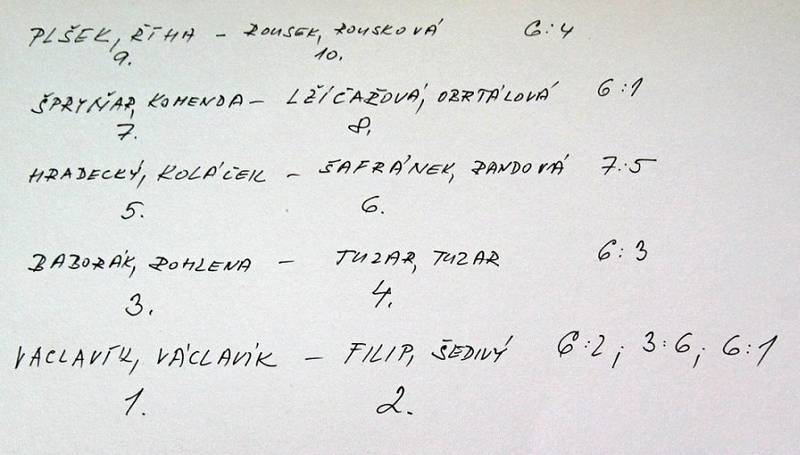 PLŠEK, ŘÍHA – ROUSEK, ROUSKOVÁ 6:4
9. 10.
ŠPRYŇAR, KOMENDA – LŽÍČAŘOVÁ, OBRTÁLOVÁ 6:1
7. 8.
HRADECKÝ, KOLÁČEK – ŠAFRÁNEK, RANDOVÁ 7:5
5. 6.
BABORÁK, ROHLENA – TUZAR, TUZAR 6:3
3. 4.
VÁCLAVÍK, VÁCLAVÍK – FILIP, ŠEDIVÝ 6:2; 3:6; 6:1
1. 2.